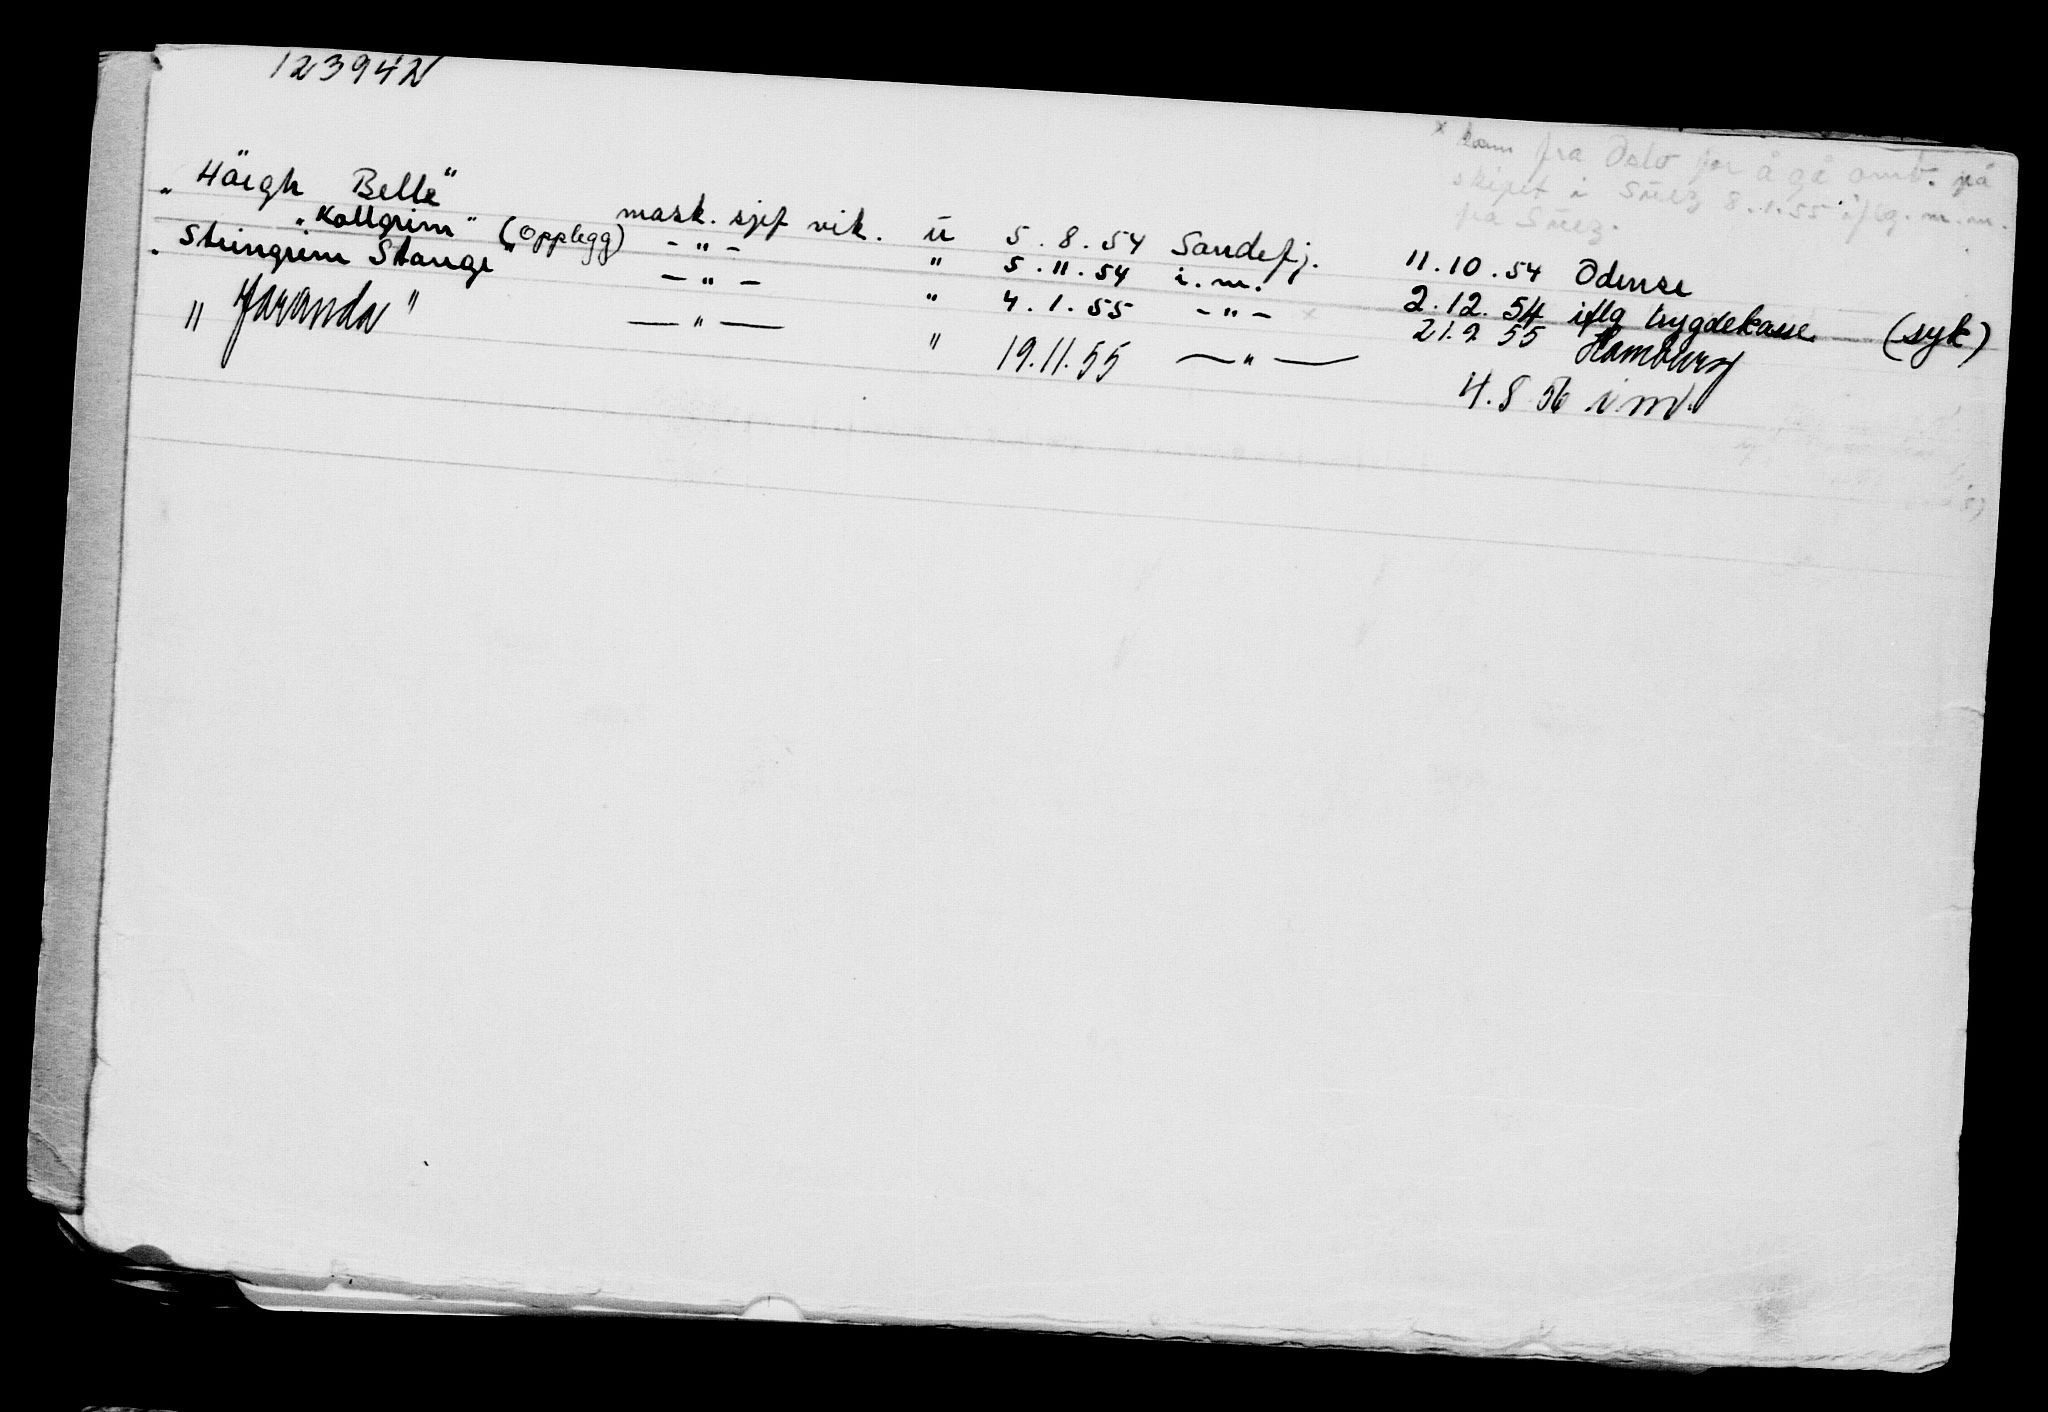 123942
x kom fra Oslo for å gå omb. på
skipet i Süez 8.1.55 iflg. m.m.
fra Süez.
"Höegh Belle" mask. sjef vik. ü 5.8.54 Sandefj. 11.10.54 Odense
"Kollgrim" (opplegg) -"- " 5.11.54 i.m. 2.12.54 iflg trygdekasse (syk)
"Steingrim Stange" -"- " 4.1.55 -"- x 21.9 55 Hamburg
"Jaranda" -"- " 19.11.55 -"- 4.8 56 i m.